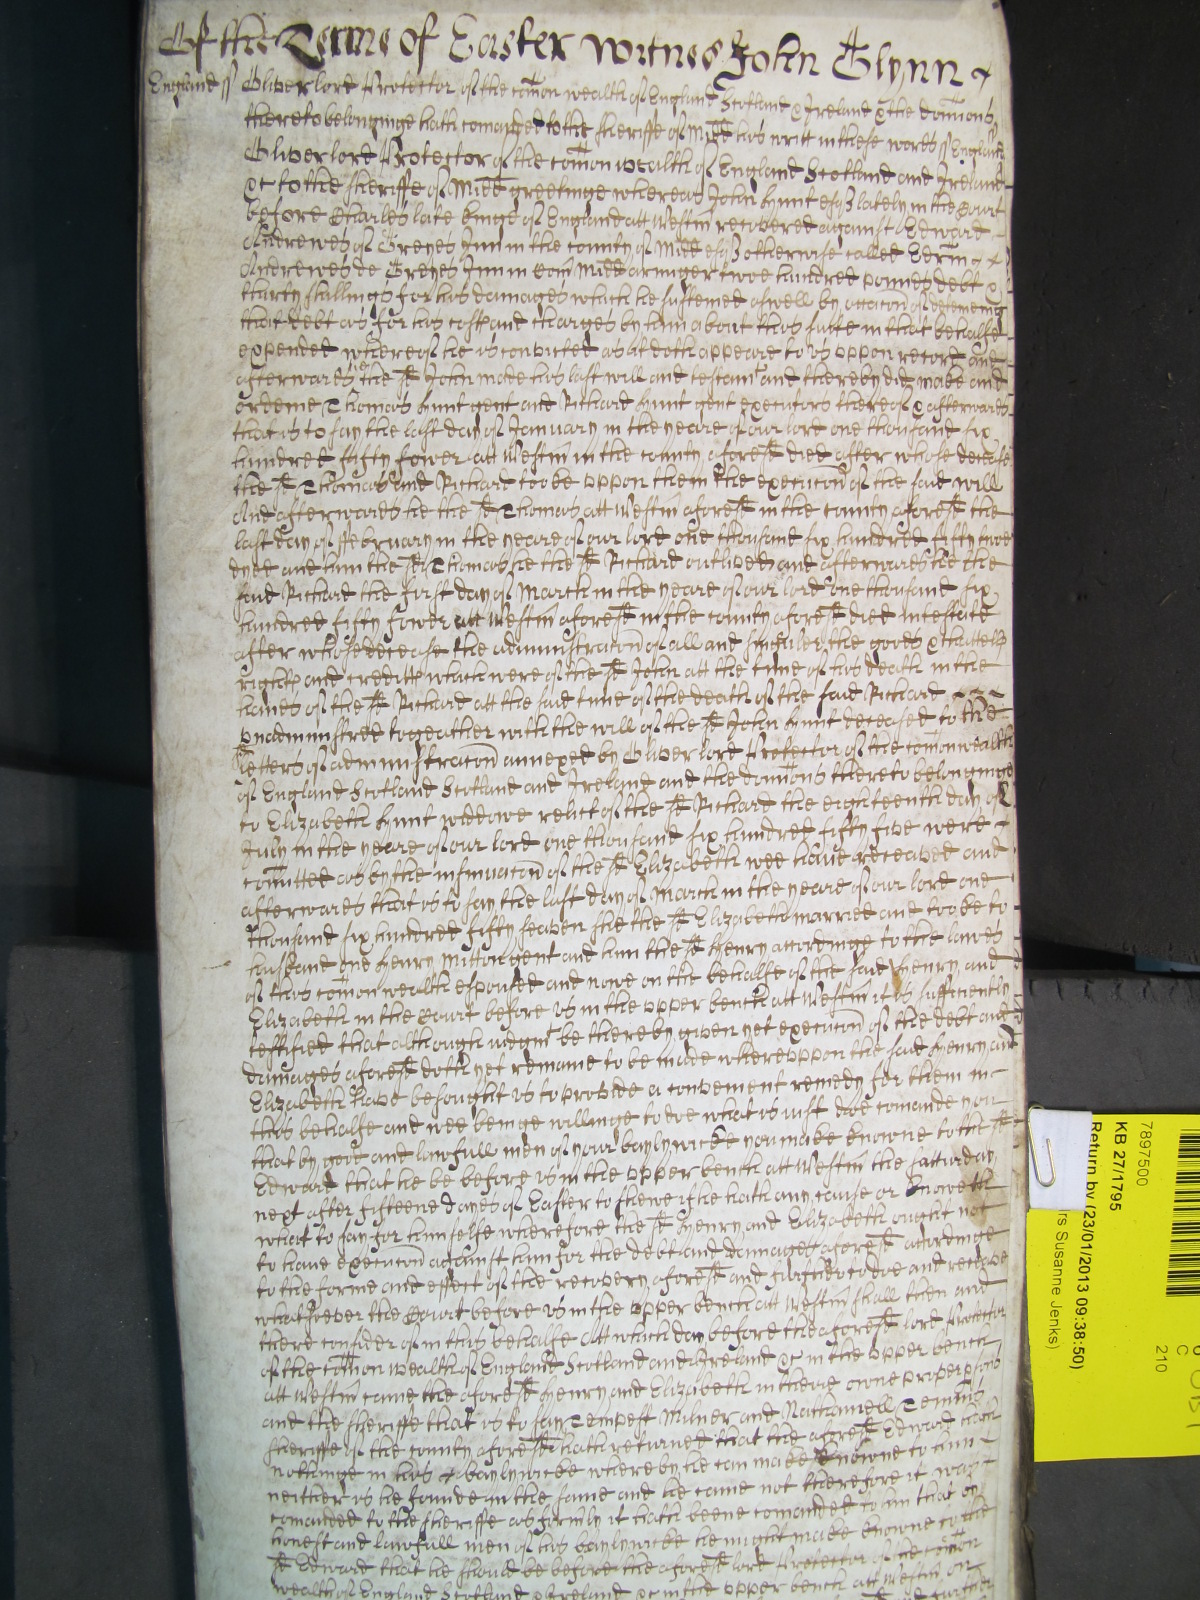 Of the Terme of Easter Witnes John Glynn
England ss Oliver lord Protector of the com̄on wealth of England Scotland & Ireland & the domīons
thereto belonginge hath comanded to the sheriffe of Midd his writt in these words ss England
Oliver lord Protector of the com̄on wealth of England Scotland and Ireland
&c to the sheriffe of Midd greetinge whereas John Hunt esq lately in the Court
before Charles late kinge of England att Westm̄ recovered against Edward
Andrewes of Greyes Inn in the county of Midd esq otherwise called Edr̄m
Andrewes de Greyes Inn in Com̄ Midd armiger twoe hundred pounds debt &
thirty shillings for his damages which he susteined aswell by occacōn of deteineing
that debt as for his costs and charges by him about his suite in that behalfe
expended whereof he is convicted as it doth appeare to us uppon record and
afterwards he the sd John made his last will and testamt and thereby did make and
ordeine Thomas Hunt gent and Richard Hunt gent executors thereof & afterwards
that is to say the last day of January in the yeare of our lord one thousand six
hundred fifty fower att Westm̄ in the county aforesd died after whose decease
the sd Thomas and Richard tooke uppon them the execucōn of the said will
And afterwards he the sd Thomas att Westm̄ aforesd in the county aforesd the
last day of ffebruary in the yeare of our lord one thousand six hundred fifty
dyed and him the sd Thomas he the sd Richard outlived and afterwards he the
said Richard the first day of March in the yeare of our lord one thousand six
hundred fifty fower att Westm̄ aforesd in the county aforesd died intestate
after whose decease the administracōn of all and singuler the goods & chattells
rights and creditts which were of the sd John att the time of his death in the
hands of the sd Richard att the said time of the death of the said Richard
unadministred togeather with the will of the sd John Hunt deceased to the
letters of administracōn annexed by Oliver lord Protector of the com̄onwealth
of England Scotland Scotland and Ireland and the domīons thereto belonginge
to Elizabeth Hunt widdowe relict of the sd Richard the eighteenth day of
July in the yeare of our lord one thousand six hundred fifty five were
com̄itted as by the insinuacōn of the sd Elizabeth wee have receaved and
afterwards that is to say the last day of March in the yeare of our lord one
thousand six hundred fifty seaven she the sd Elizabeth married and tooke to
husband one Henry Mitton gent and him the sd Henry accordinge to the lawes
of this com̄on wealth espoused and nowe on the behalfe of the said Henry and
Elizabeth in the Court before us in the upper bench att Westm̄ it is sufficiently
testified that although iudgmt be thereby given yet execucōn of the debt and
damages aforesd doth yet remaine to be made whereuppon the said Henry and
Elizabeth have besought us to provide a convenient remedy for them in
this behalfe and wee beinge willinge to doe what is iust doe comande you
that by good and lawfull men of your baylywicke you make knowne to the sd
Edward that he be before us in the upper bench att Westm̄ the satturday
next after fifteene dayes of Easter to shewe if he hath any cause or knoweth
what to say for himselfe wherefore the sd Henry and Elizabeth ought not
to have execucōn against him for the debt and damages aforesd accordinge
to the forme and effect of the recovery aforesd and further to doe and receave
whatsoever the Court before us in the upper bench att Westm̄ shall then and
there consider of in this behalfe Att which day before the aforesd lord Protector
of the com̄on wealth of England Scotland and Ireland &c in the upper bench
att Westm̄ came the aforesd Henry and Elizabeth in theire owne proper psons
and the sheriffe that is to say Tempest Milner and Nathaniell Temms
sheriffe of the county aforesd hath returned that the aforesd Edward hath
nothinge in his baylywicke whereby he can make knowne to him
neither is he founde in the same and he came not therefore it was
comanded to the sheriffe as form̄ly it hath beene comanded to him that by
honest and lawfull men of his baylywicke he might make knowne to the
sd Edward that he should be before the aforesd lord Protector of the com̄on
wealth of England Scotland & Ireland &c in the upper bench att Westm̄ on
7897500
KB 27/1795
Return by (23/01/2013 09:38:50)
rs Susanne Jenks)
C
210